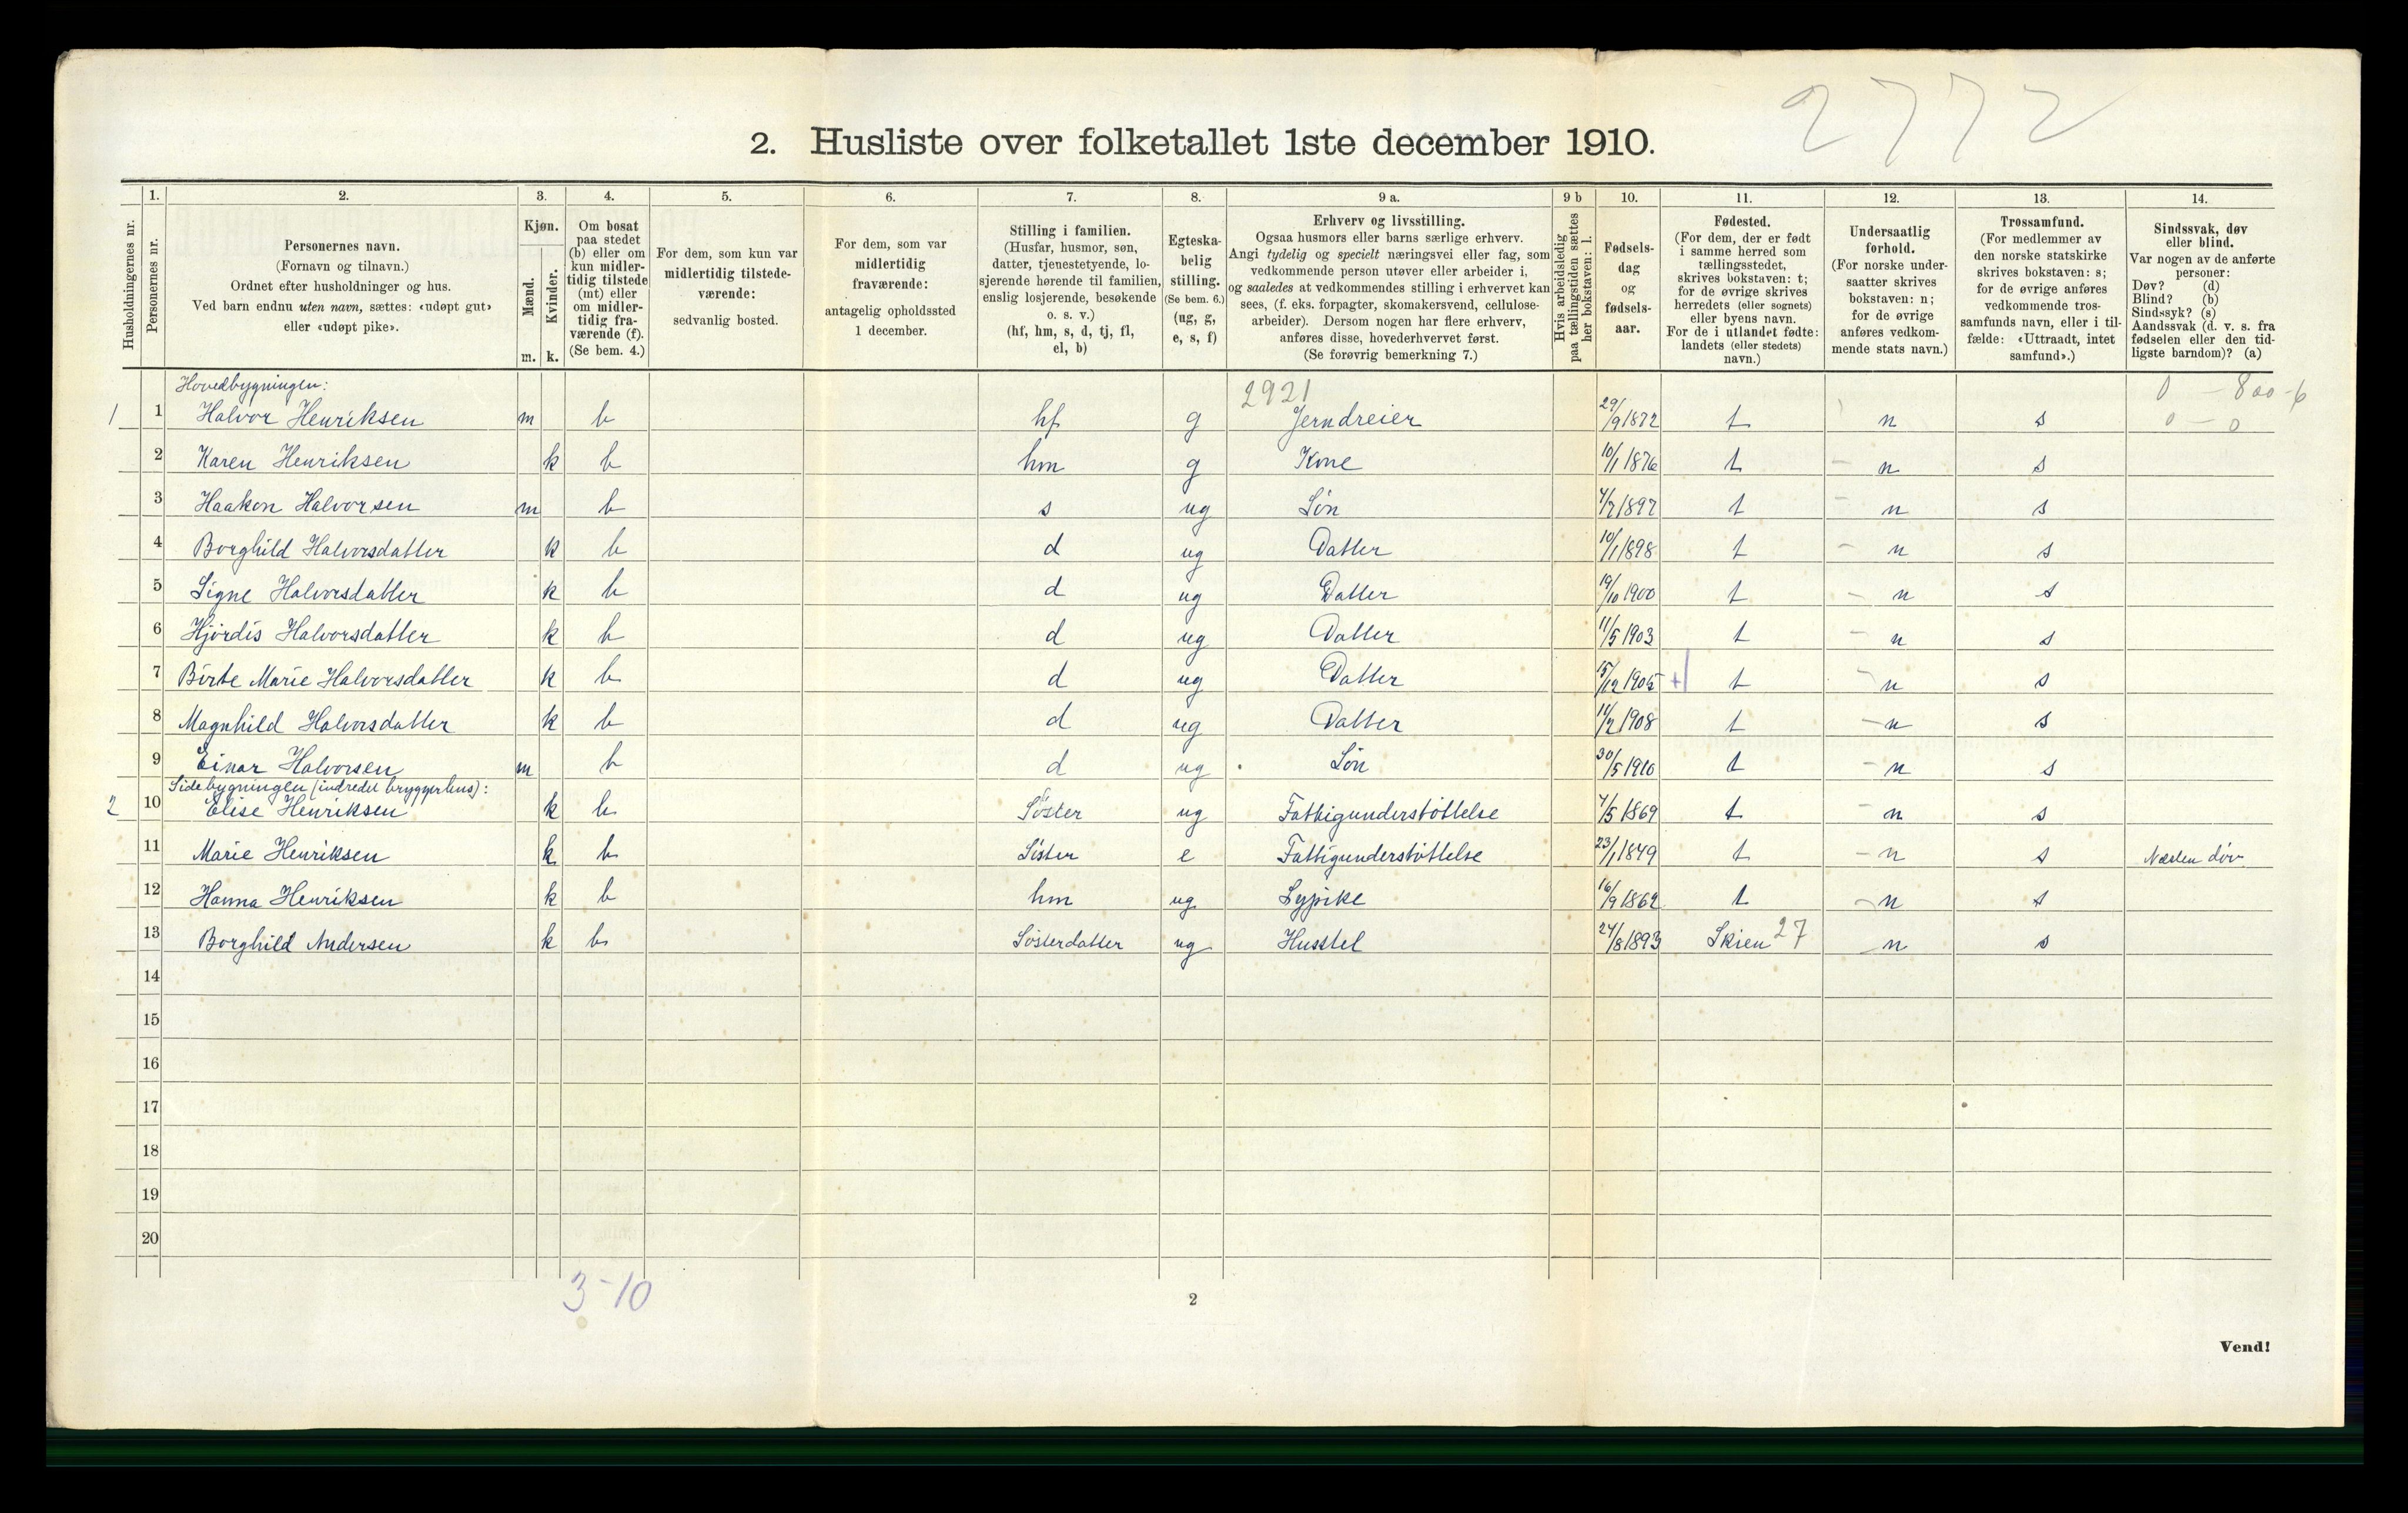 2772
2. Husliste over folketallet 1ste december 1910.
Husholdningernes nr.
1. Personernes nr.
2.
Personernes navn.
(Fornavn og tilnavn.)
Ordnet efter husholdninger og hus.
Ved barn endnu uten navn, sættes: «udøpt gut»
eller «udøpt pike».
3.
Kjøn.
Mænd. Kvinder.
m. k.
4.
Om bosat
paa stedet
(b) eller om
kun midler-
tidig tilstede
(mt) eller
om midler-
tidig fra-
værende (f).
(Se bem. 4.)
5.
For dem, som kun var
midlertidig tilstede-
værende:
sedvanlig bosted.
6.
For dem, som var
midlertidig
fraværende:
antagelig opholdssted
1 december.
7.
Stilling i familien.
(Husfar, husmor, søn,
datter, tjenestetyende, lo-
sjerende hørende til familien,
enslig losjerende, besøkende
o. s. v.)
(hf, hm, s, d, tj, fl,
el, b)
8.
Egteska-
belig
stilling.
(Se bem. 6.)
(ug, g,
e, s, f)
9 a.
Erhverv og livsstilling.
Ogsaa husmors eller barns særlige erhverv.
Angi tydelig og specielt næringsvei eller fag, som
vedkommende person utøver eller arbeider i,
og saaledes at vedkommendes stilling i erhvervet kan
sees, (f. eks. forpagter, skomakersvend, cellulose-
arbeider). Dersom nogen har flere erhverv,
anføres disse, hovederhvervet først.
(Se forøvrig bemerkning 7.)
9 b
Hvis arbeidsledig
paa tællingstiden sættes
her bokstaven: l.
10.
Fødsels-
dag
og
fødsels-
aar.
11.
Fødested.
(For dem, der er født
i samme herred som
tællingsstedet,
skrives bokstaven: t;
for de øvrige skrives
herredets (eller sognets)
eller byens navn.
For de i utlandet fødte:
landets (eller stedets)
navn.)
12.
Undersaatlig
forhold.
(For norske under-
saatter skrives
bokstaven: n;
for de øvrige
anføres vedkom-
mende stats navn.)
13.
Trossamfund.
(For medlemmer av
den norske statskirke
skrives bokstaven: s;
for de øvrige anføres
vedkommende tros-
samfunds navn, eller i til-
fælde: «Uttraadt, intet
samfund».)
14.
Sindssvak, døv
eller blind.
Var nogen av de anførte
personer:
Døv? (d)
Blind? (b)
Sindssyk? (s)
Aandssvak (d. v. s. fra
fødselen eller den tid-
ligste barndom)? (a)
Hovedbygningen: 2921 0 - 800-6
1 1 Halvor Henriksen m b hf g Jerndreier 29/9 1872 t n s 0 - 0
2 Karen Henriksen k b hm g Kone 10/1 1876 t - n s
3 Haakon Halvorsen m b s ug Søn 4/2 1897 t - n s
4 Borghild Halvorsdatter k b d ug Datter 10/1 1898 t - n s
5 Signe Halvorsdatter k b d ug Datter 19/10 1900 t - n s
6 Hjørdis Halvorsdatter k b d ug Datter 11/5 1903 t - n s
7 Birte Marie Halvorsdatter k b d ug Datter 15/12 1905 t - n s
8 Magnhild Halvorsdatter k b d ug Datter 11/2 1908 t - n s
9 Einar Halvorsen m b d ug Søn 30/5 1910 t - n s
Sidebygningen (indredet bryggerhus):
2 10 Elise Henriksen k b Søster ug Fattigunderstøttelse 4/5 1869 t - n s
11 Marie Henriksen k b Søster e Fattigunderstøttelse 23/1 1849 t - n s Næsten døv
12 Hanna Henriksen k b hm ug Sypike 16/9 1862 t - n s
13 Borghild Andersen k b Søsterdatter ug Husstel 24/8 1893 Skien 27 - n s
14
15
16
17
18
19
20
3-10
2
Vend!